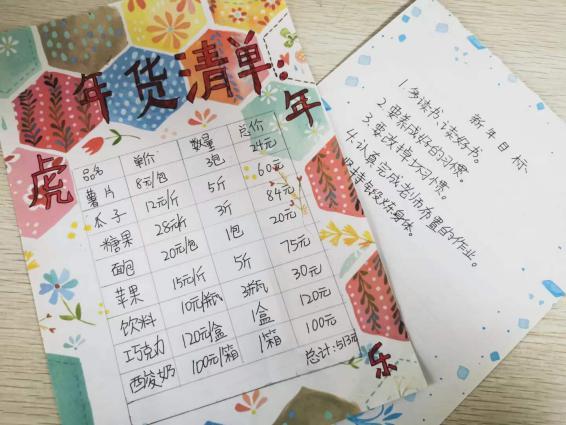 年货清单:
虎
年
品名 单价 数量 总价
薯片 8元/包 3包 24元
瓜子 12元/斤 5斤 60元
糖果 28元/斤 3斤 84元
面包 20元/包 1包 20元
苹果 15元/斤 5斤 75元
饮料 10元/瓶 3瓶 30元
巧克力 120元/盒 1盒 120元
酸奶 100元/箱 1箱 100元
总计:513元
乐
新年目标
1.多读书、读好书。
2.要养成好的习惯。
3.要改掉坏习惯。
4.认真完成老师布置的作业。
坚持锻炼身体。